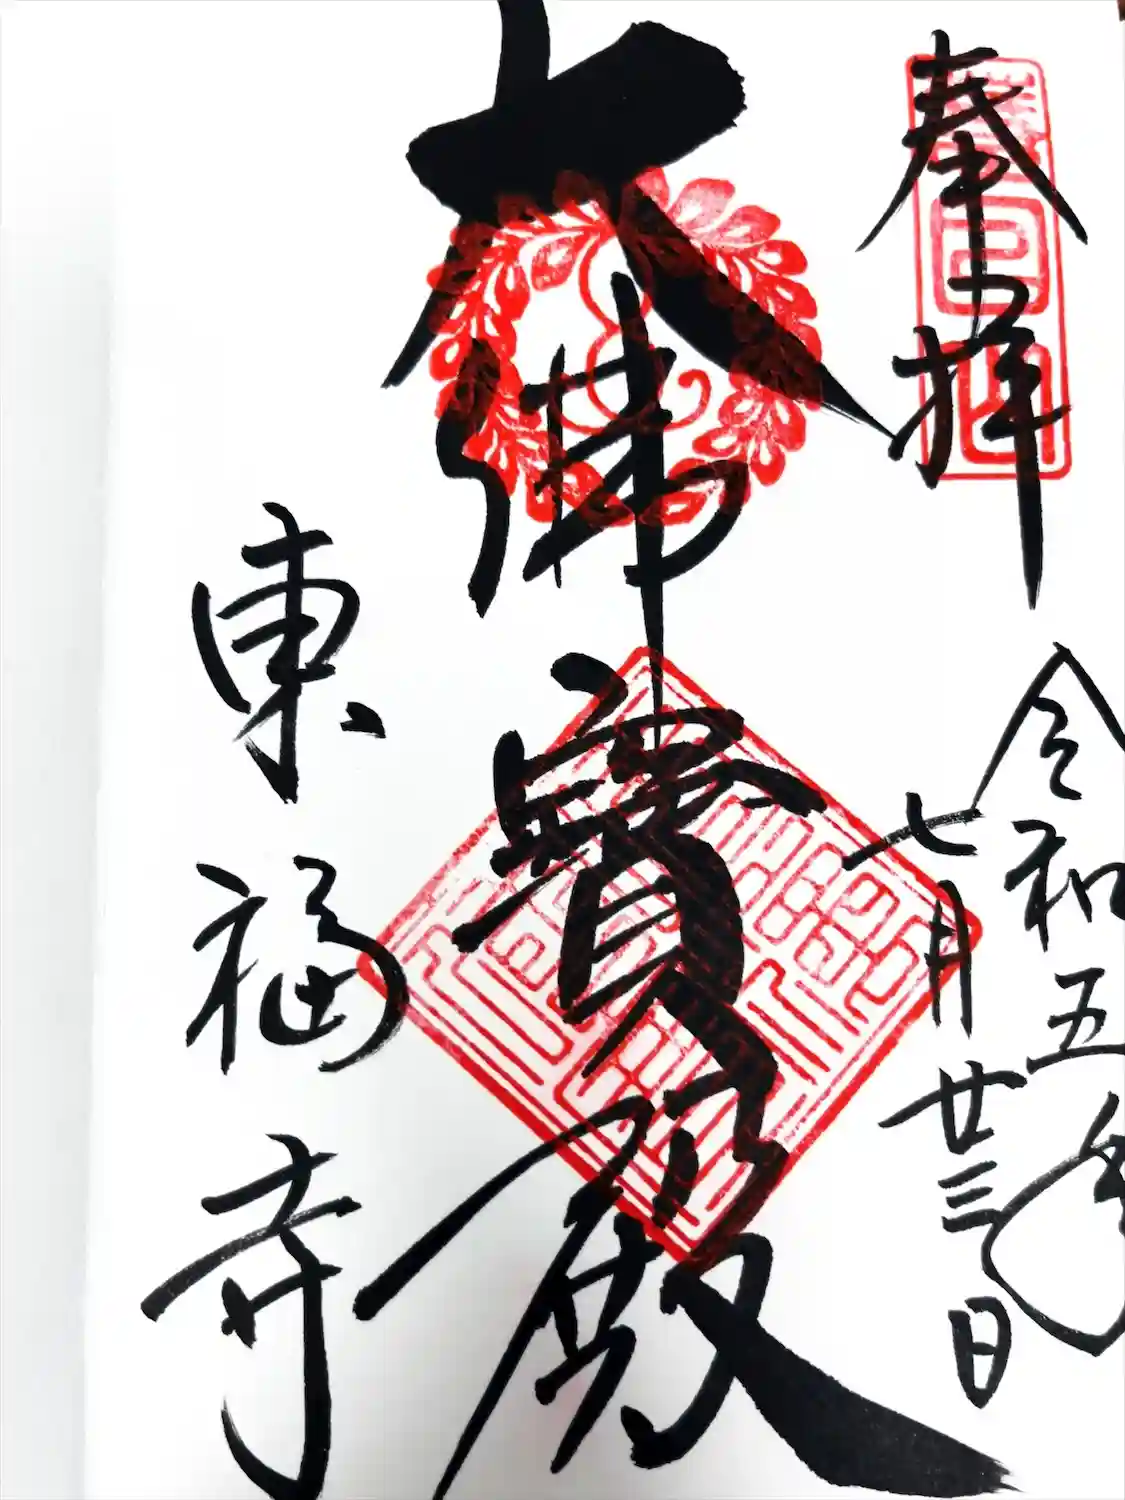 奉拝
令和五年
七月廿三日
大佛寳殿
東福寺